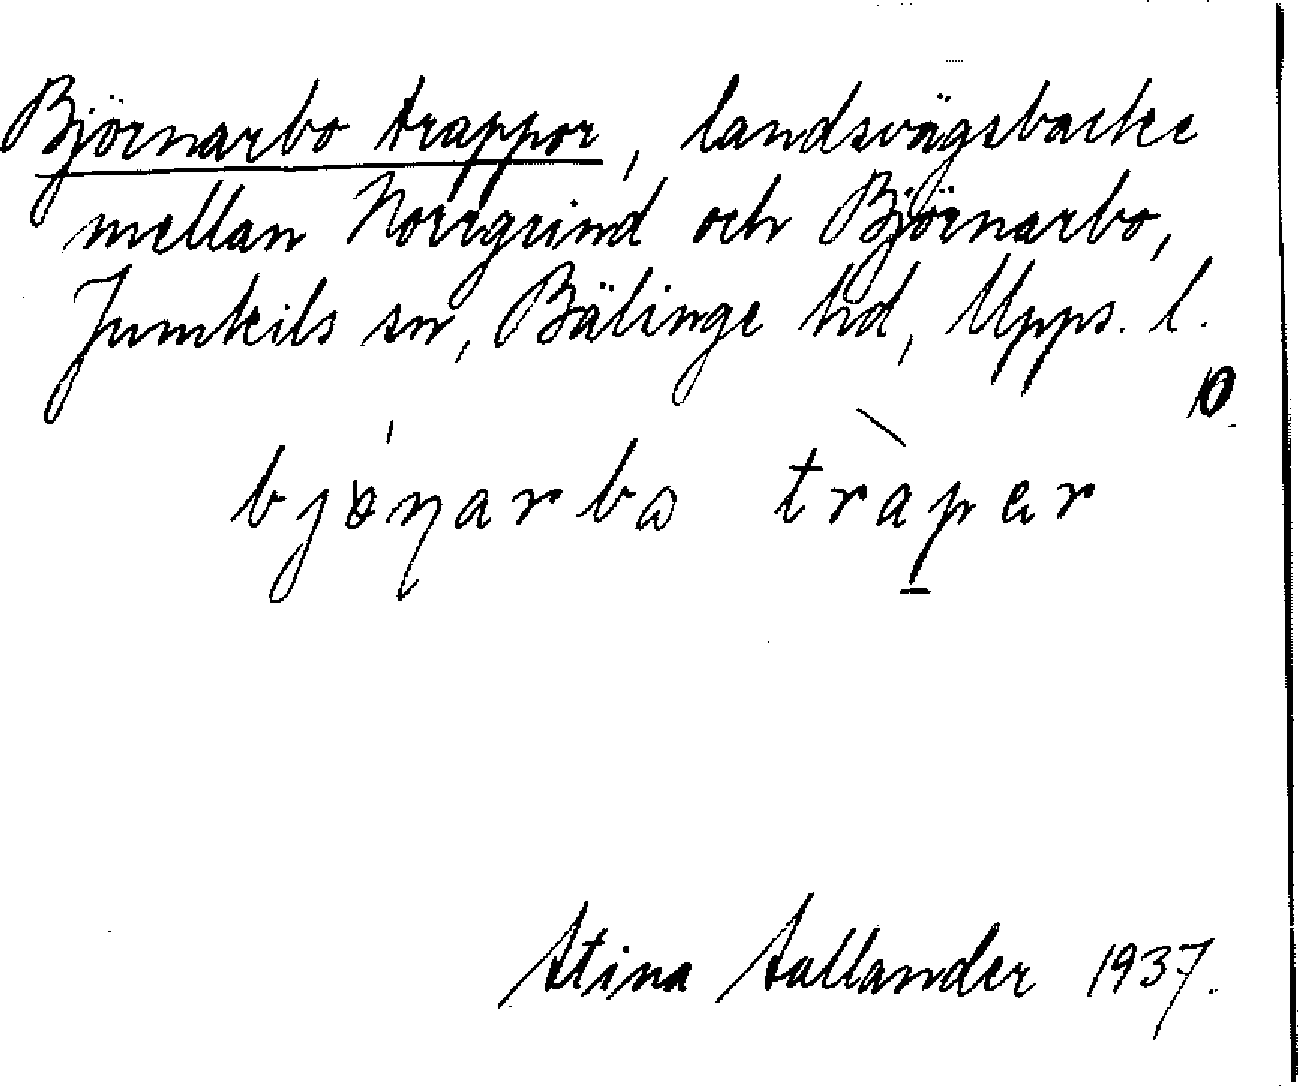 Björnarbo trappor, landsvägsbacke
mellan Norrgrind och Björnarbo,
Jumkils sn, Bälinge hd, Upps. l.
bjɵ́ɳarbo tràper
Stina Sallander 1937.